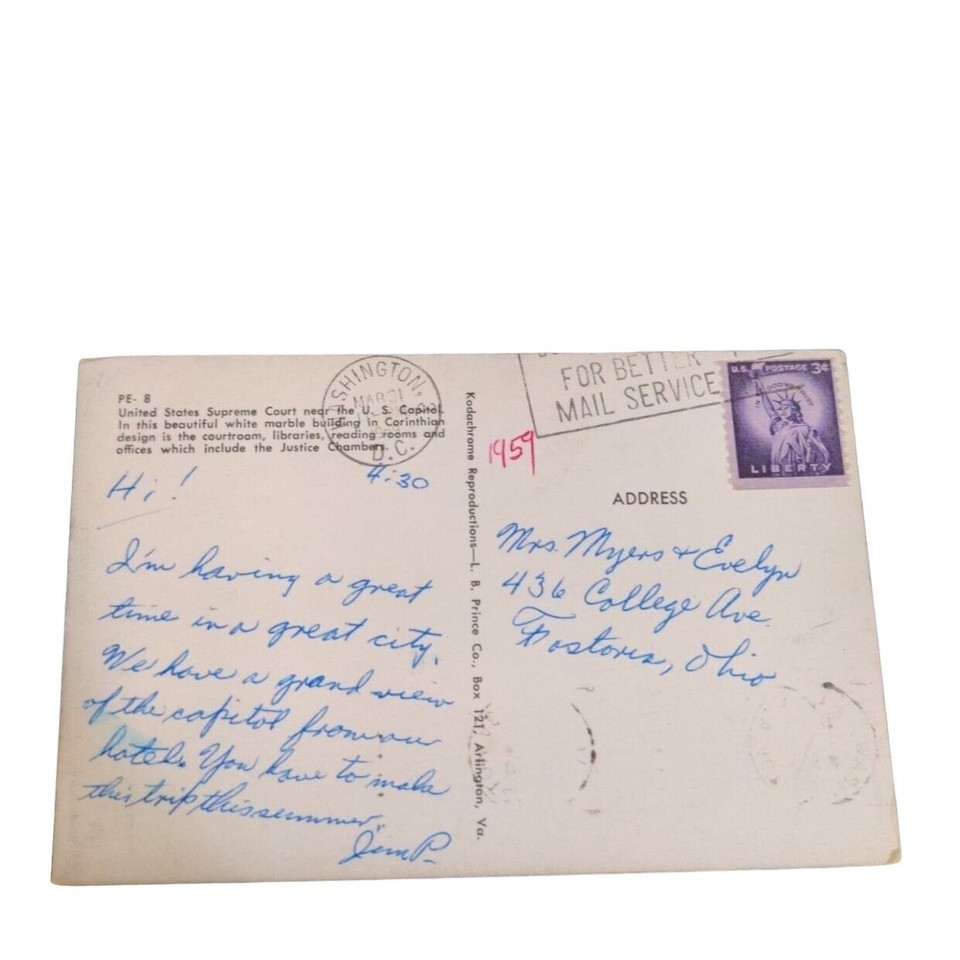 PE- 8
United States Supreme Court near the U. S. Capitol.
In this beautiful white marble building in Corinthian
design is the courtroom, libraries, reading rooms and
offices which include the Justice Chambers.
WASHINGTON,
MAR 31
D.C.
4:30
Hi!
I'm having a great
time in a great city.
We have a grand view
of the capitol from our
hotel. You have to make
this trip this summer.
Jim P.
Kodachrome Reproductions—L. B. Prince Co., Box 121, Arlington, Va.
FOR BETTER
MAIL SERVICE
U.S. POSTAGE 3¢
IN GOD WE TRUST
LIBERTY
1959
ADDRESS
Mrs. Myers & Evelyn
436 College Ave.
Fostoria, Ohio